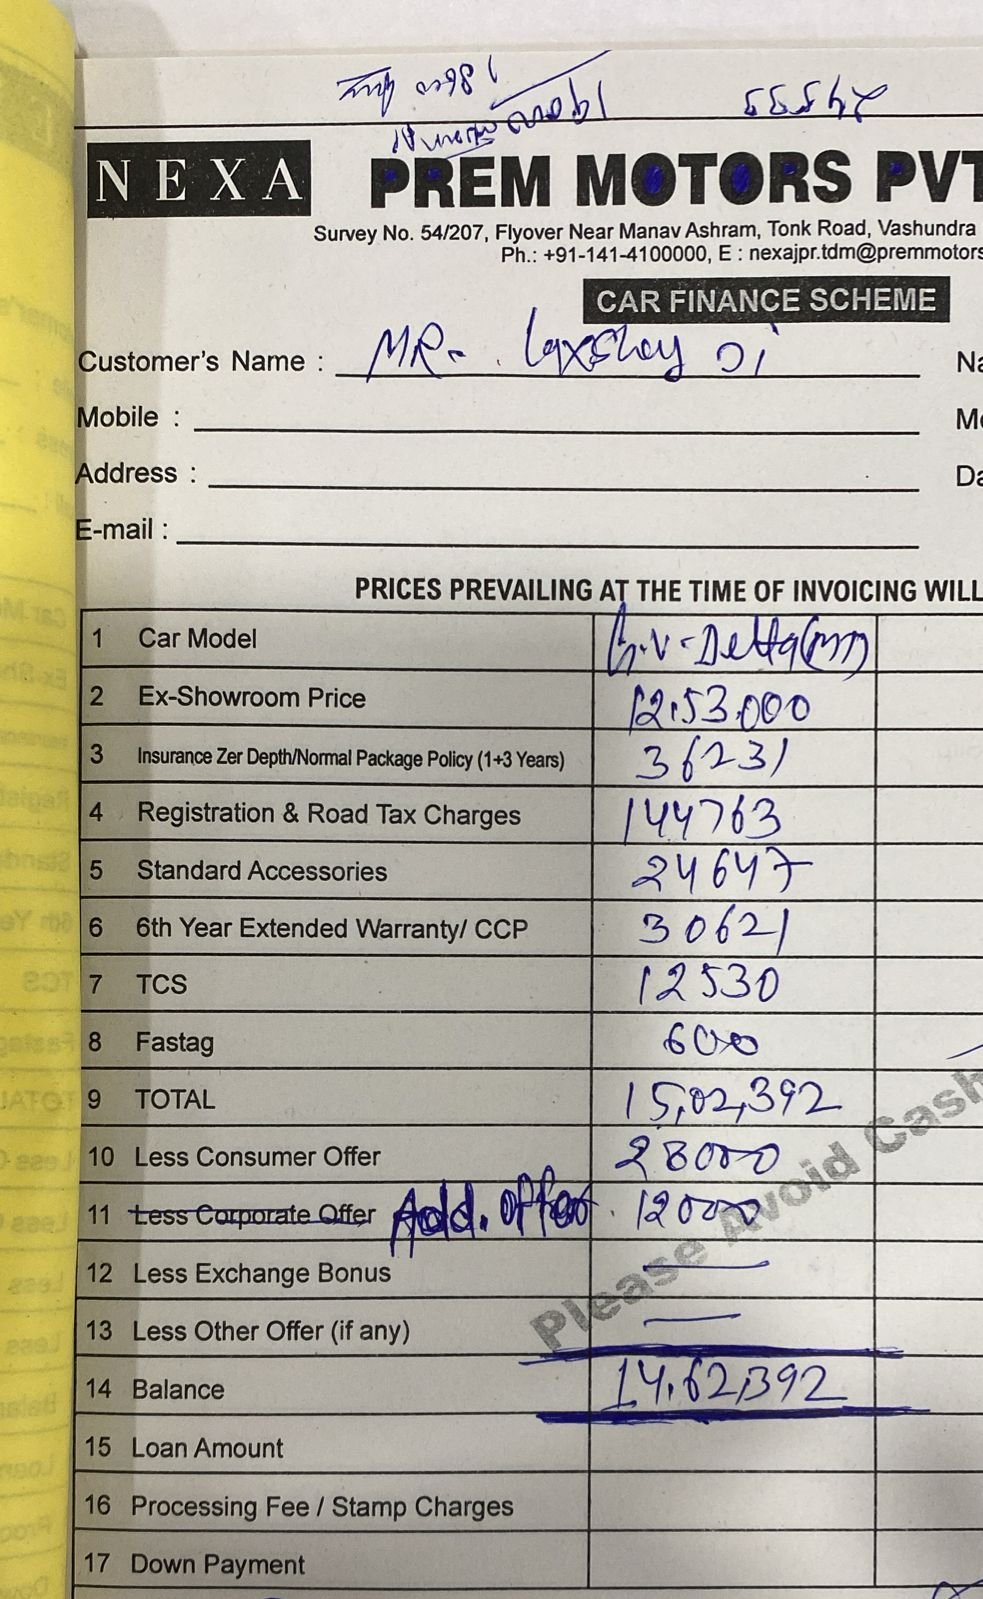 24555
NEXA PREM MOTORS PVT
Survey No. 54/207, Flyover Near Manav Ashram, Tonk Road, Vashundra
Ph.: +91-141-4100000, E : nexajpr.tdm@premmotors
CAR FINANCE SCHEME
Customer's Name : MR. Laxshay Ji
Mobile :
Address :
E-mail :
PRICES PREVAILING AT THE TIME OF INVOICING WILL
1 Car Model G.V-Delta(
2 Ex-Showroom Price 12,53,000
3 Insurance Zer Depth/Normal Package Policy (1+3 Years) 36231
4 Registration & Road Tax Charges 144763
5 Standard Accessories 24647
6 6th Year Extended Warranty/ CCP 30621
7 TCS 12530
8 Fastag 600
9 TOTAL 15,02,392
10 Less Consumer Offer 28000
11 Less Corporate Offer Add. offer 12000
12 Less Exchange Bonus —
13 Less Other Offer (if any) —
14 Balance 14,62,392
15 Loan Amount
16 Processing Fee / Stamp Charges
17 Down Payment
Please Avoid Cash